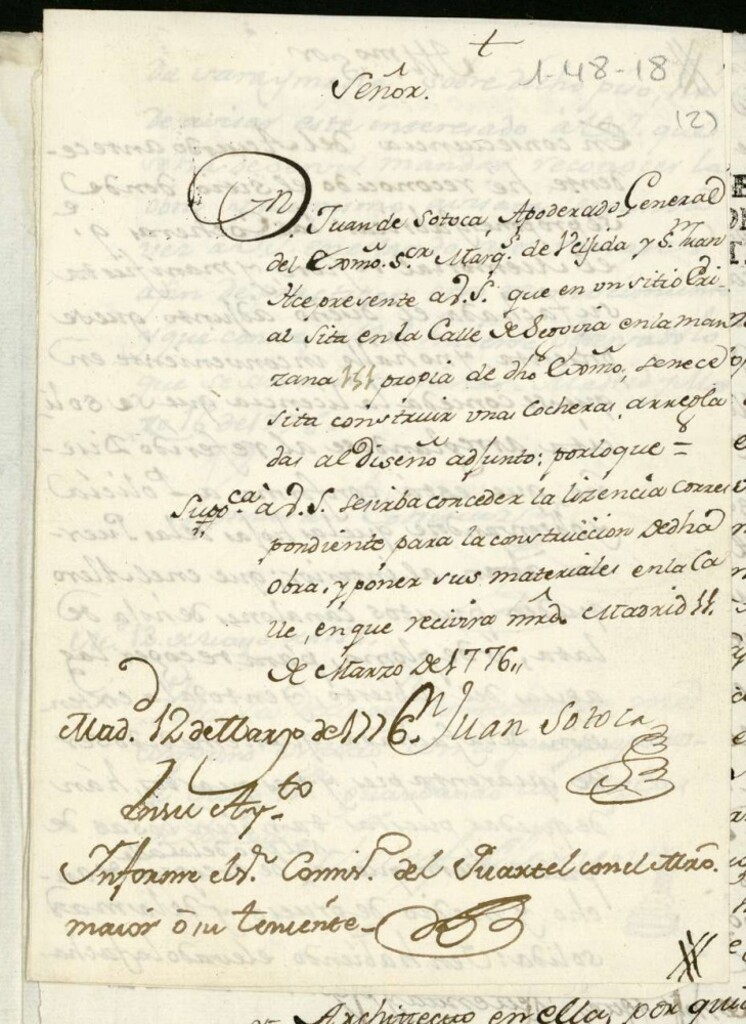 t
1-48-18
(2)
Señor.
Dn. Juan de Sotoca, Apoderado General
del Exmo. S.or Marq.s de Velſida y Sn. Juan
Hace presente a V.S. que en vn sitio Eri-
al sita en la Calle de Segovia en la man
zana 151 propia de dho Exmo, se nece
sita construir vnas Cocheras, arregla
das al Diseño adjunto: por lo que =
Supp.ca a V.S. se sirba conceder la lizencia corres
pondiente para la construccion de dha
Obra, y poner sus materiales en la Ca
lle, en que recivira mrd. Madrid 11
de Marzo de 1776,,
Dn. Juan Sotoca
Mad.d 12 de Marzo de 1776.
En su Ay.to
Informe el S.r Comis.o del Quartel con el Mro.
maior ô su teniente
Architecto en ella, por